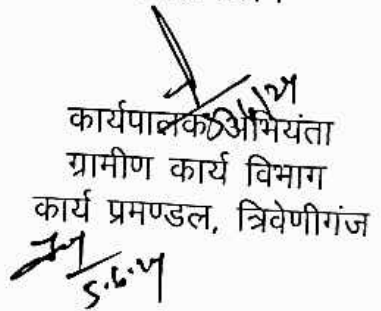 कार्यपालक अभियंता
ग्रामीण कार्य विभाग
कार्य प्रमण्डल, त्रिवेणीगंज
5.6.24